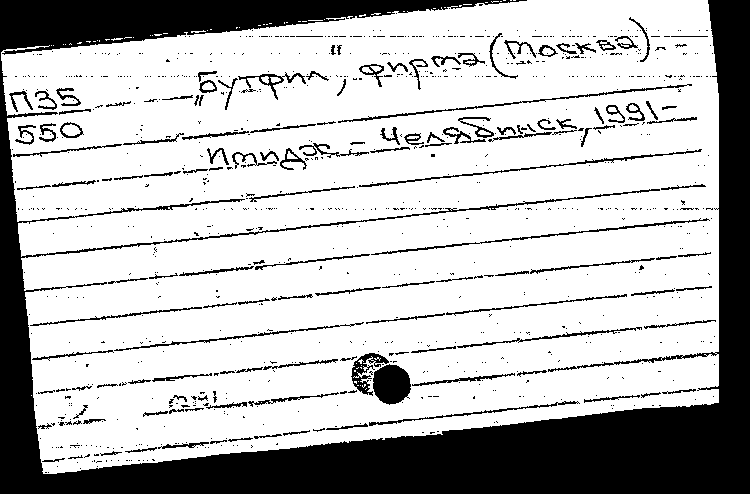 П35
550
„Бутфил“, фирма (Москва).
Имидж – Челябинск, 1991–